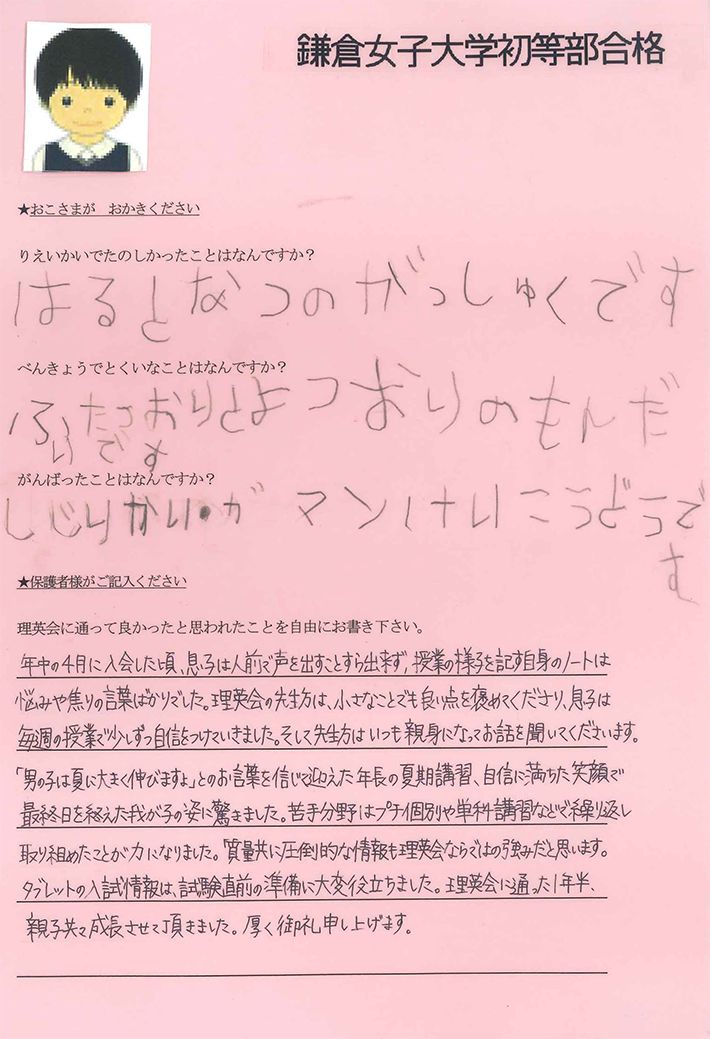 鎌倉女子大学初等部合格
★おこさまが おかきください
りえいかいでたのしかったことはなんですか？
はるとなつのがっしゅくです
べんきょうでとくいなことはなんですか？
ふたつおりとよつおりのもんだ
いです
がんばったことはなんですか？
しじりかい・が マンけいこうどうで
す
★保護者様がご記入ください
理英会に通って良かったと思われたことを自由にお書き下さい。
年中の4月に入会した頃、息子は人前で声を出すことすら出来ず、授業の様子を記す自身のノートは
悩みや焦りの言葉ばかりでした。理英会の先生方は、小さなことでも良い点を褒めてくださり、息子は
毎週の授業で少しずつ自信をつけていきました。そして先生方はいつも親身になってお話を聞いてくださいます。
「男の子は夏に大きく伸びますよ」とのお言葉を信じて迎えた年長の夏期講習、自信に満ちた笑顔で
最終日を終えた我が子の姿に驚きました。苦手分野はプチ個別や単科講習などで繰り返し
取り組めたことが力になりました。質量共に圧倒的な情報も理英会ならではの強みだと思います。
タブレットの入試情報は、試験直前の準備に大変役立ちました。理英会に通った1年半、
親子共々成長させて頂きました。厚く御礼申し上げます。